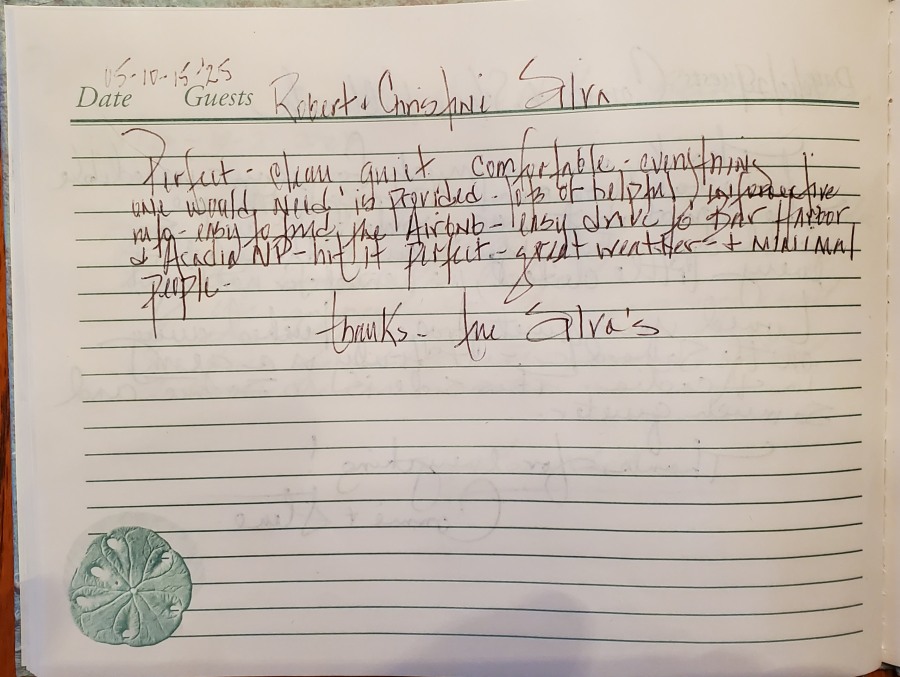 05-10-15-'25
Date Guests Robert & Christine Silva
Perfect - clean quiet comfortable - everything
one would need is provided - lots of helpful informative
info - easy to find the Airbnb - easy drive to Bar Harbor
& Acadia NP - hit it perfect - great weather + minimal
people -
thanks - the Silva's